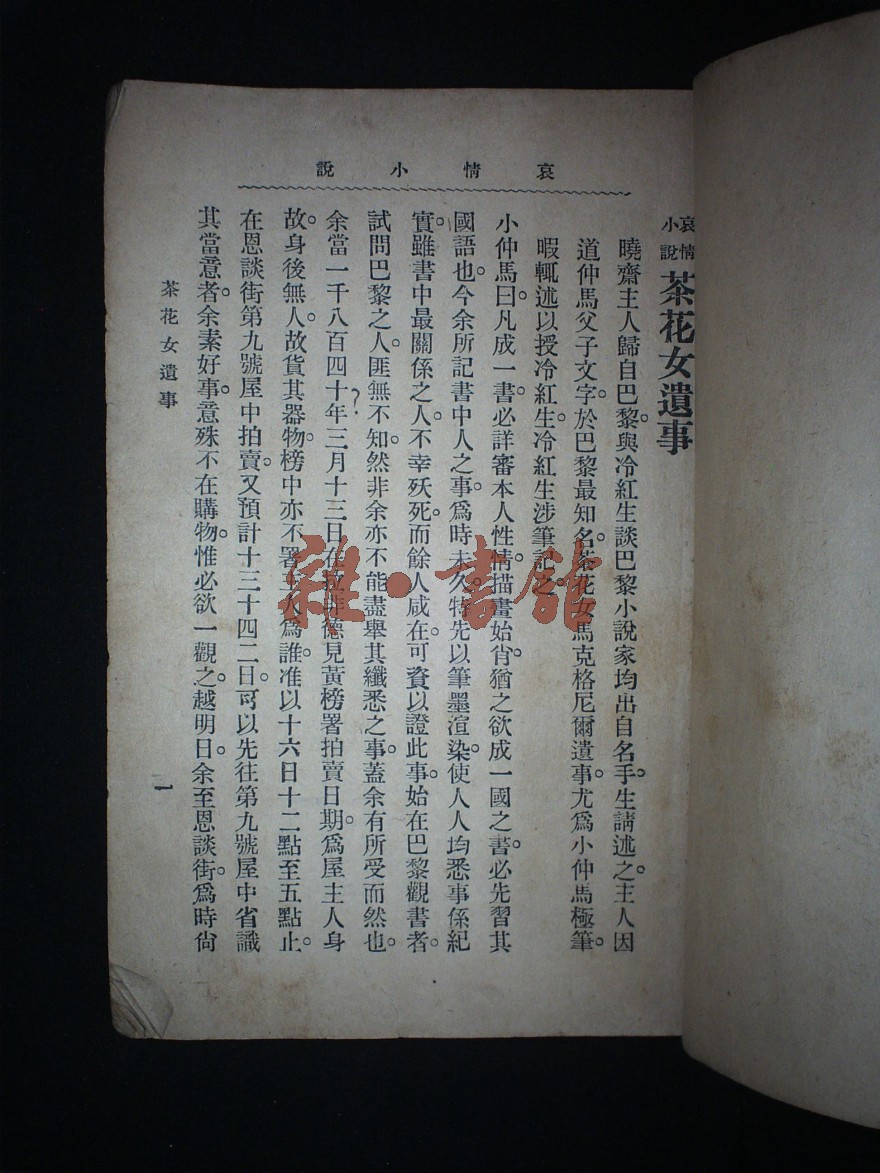 哀情小說
哀情小說
茶花女遺事
曉齋主人歸自巴黎。與冷紅生談巴黎小說家均出自名手。生請述之。主人因
道仲馬父子文字。於巴黎最知名。茶花女馬克格尼爾遺事。尤爲小仲馬極筆。
暇輒述以授冷紅生。冷紅生涉筆記之。
小仲馬曰。凡成一書。必詳審本人性情。描畫始肖。猶之欲成一國之書。必先習其
國語也。今余所記書中人之事。爲時未久。特先以筆墨渲染。使人人均悉事係紀
實。雖書中最關係之人。不幸殀死。而餘人咸在。可資以證此事。始在巴黎觀書者。
試問巴黎之人。匪無不知。然非余亦不能盡舉其纖悉之事。蓋余有所受而然也。
余當一千八百四十年三月十三日在拉非德見黃榜署拍賣日期。爲屋主人身
故。身後無人。故貨其器物。榜中亦不署主人爲誰。准以十六日十二點至五點止。
在恩談街第九號屋中拍賣。又預計十三十四二日。可以先往第九號屋中省識
其當意者。余素好事。意殊不在購物。惟必欲一觀之。越明日。余至恩談街。爲時尙
茶花女遺事
一
雜·書館